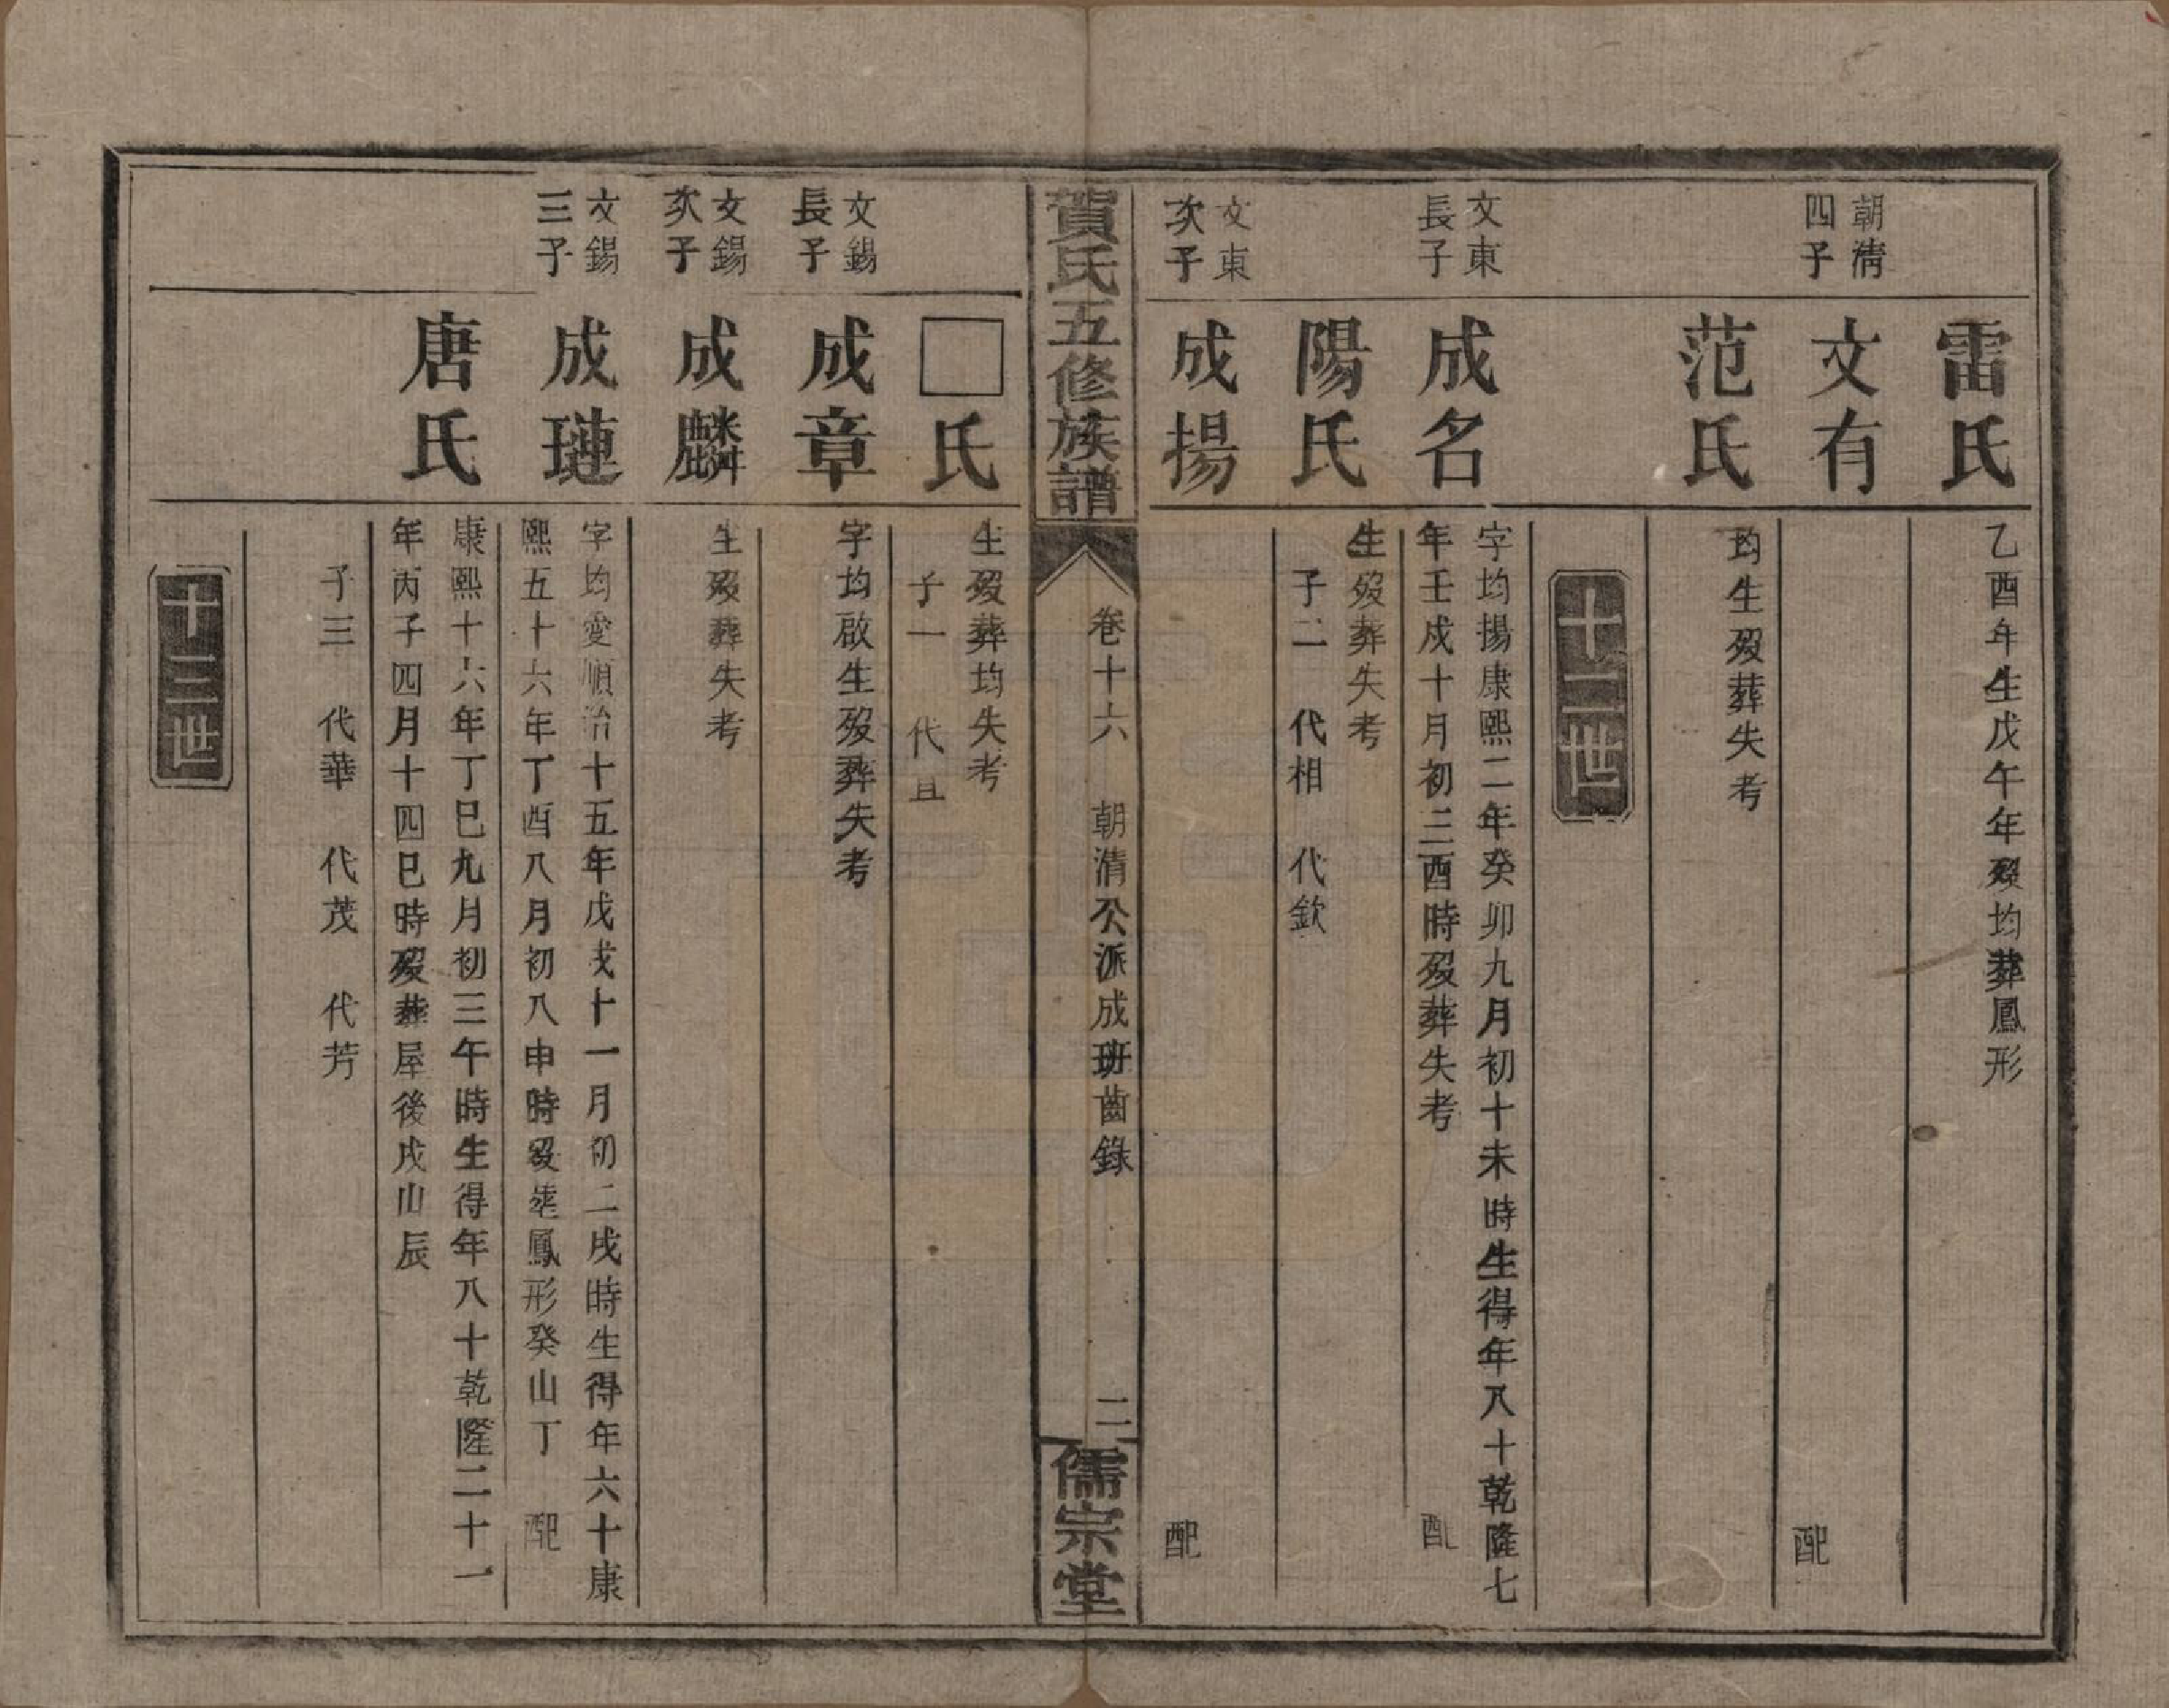 雷氏
乙酉年生戊午年歿均葬鳳形
朝淸
四子
文有
配
范氏
均生歿葬失考
十二世
文東
長子
成名
字均揚康熙二年癸卯九月初十未時生得年八十乾隆七
年壬戌十月初三酉時歿葬失考
配
陽氏
生歿葬失考
子二 代相 代欽
文東
次子
成揚
配
賀氏五修族譜
卷十六 朝清公派成班齒錄 二
儒宗堂
□氏
生歿葬均失考
子一 代且
文錫
長子
成章
字均啟生歿葬失考
文錫
次子
成麟
生歿葬失考
文錫
三子
成璉
字均愛順治十五年戊戌十一月初二戌時生得年六十康
熙五十六年丁酉八月初八申時歿塟鳳形癸山丁
配
唐氏
康熙十六年丁巳九月初三午時生得年八十乾隆二十一
年丙子四月十四巳時歿葬屋後戌山辰
子三 代華 代茂 代芳
十三世